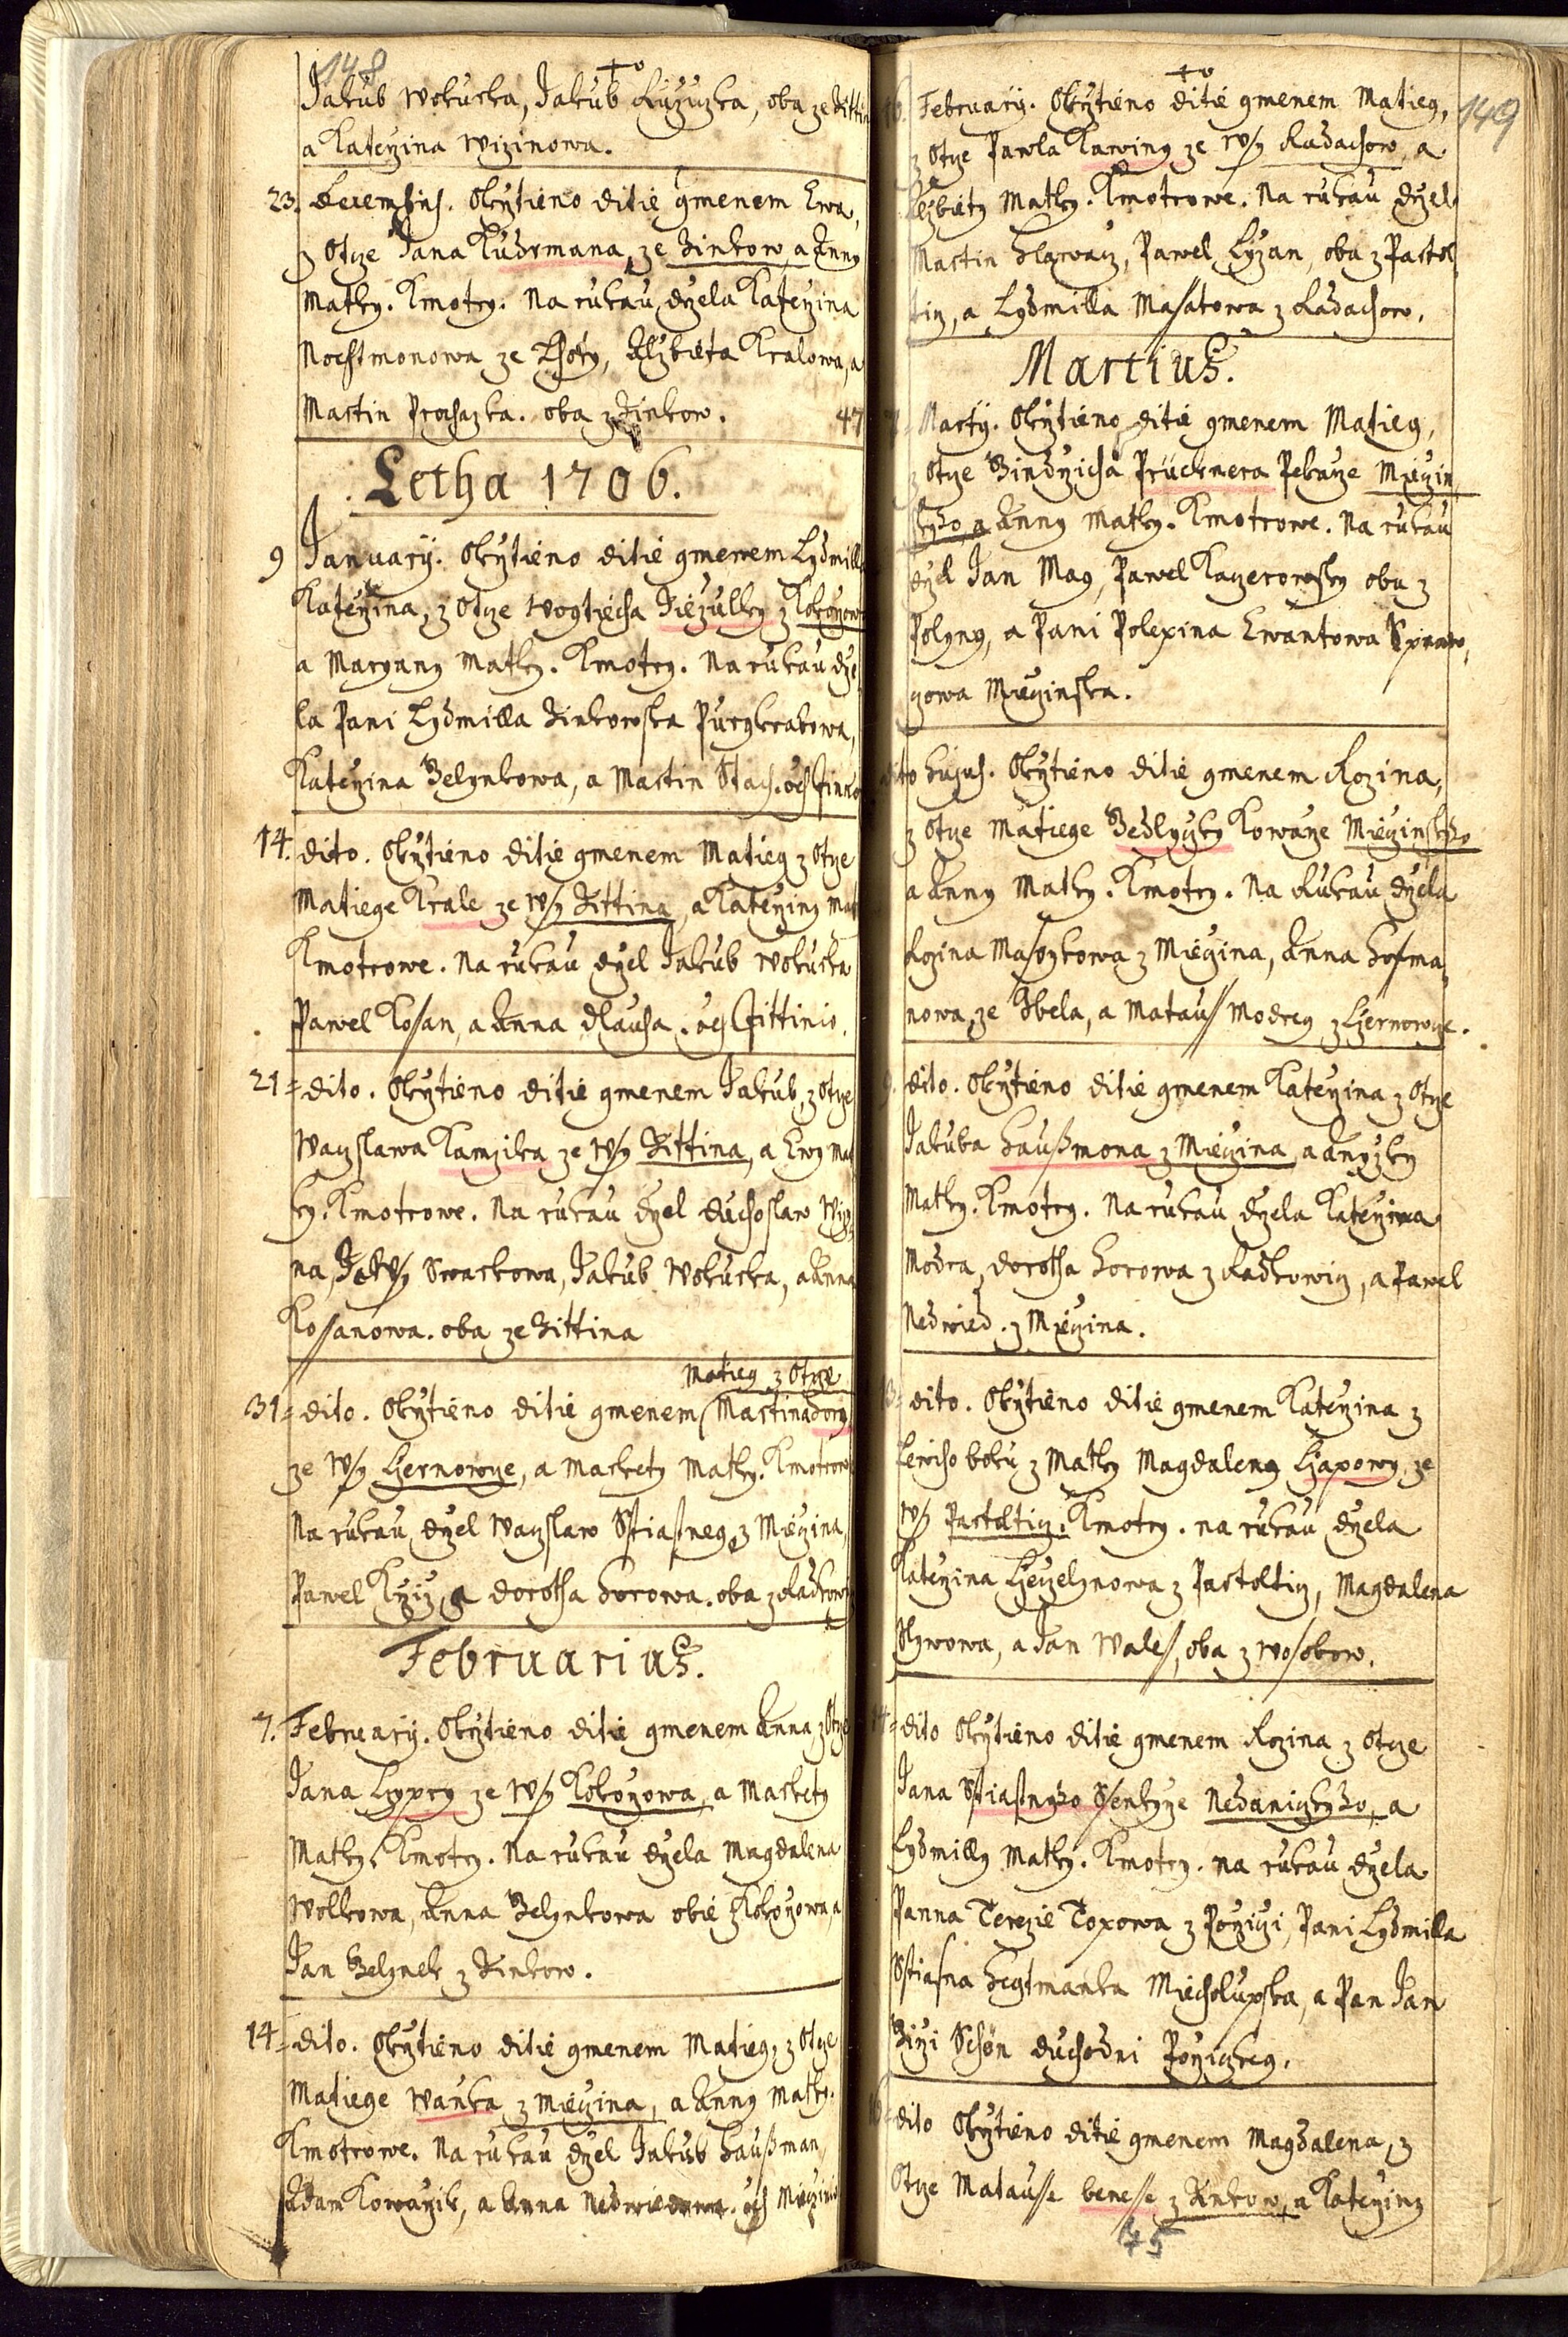 148
Jakub Wokurka, Jakub Růžyczka, oba ze Zittin
a Kateržina Wizinowa.
23. Decembris. Okrztieno ditie gmenem Ewa,
z Otcze Jana Kudrmana, ze Zinkow, a Anny
Matky. Kmotry. Na rukau držela Kateržina
Nochtmonowa ze Lhoty, Alzbieta Kralowa, a
Martin Prochazka. oba z Zinkow. 47
Letha 1706.
9 Januarij. Okrztieno ditie gmenem Lydmilla
Kateržina, z Otcze Wogtiecha Ziezulky z Kokorzowa
a Maryany Matky. Kmotry. Na rukau drže
la Pani Lydmilla Zinkowska Purgkrabowa,
Kateržina Belynkowa, a Martin Stach.
14. dito. Okrztieno ditie gmenem Matieg z Otcze
Matiege Krale ze Wsy Zittina, a Kateržiny Mat
Kmotrowe. Na rukau držel Jakub Wokurka
Pawel Kossan, a Anna Dlauha.
21= dito. Okrztieno ditie gmenem Jakub, z Otcze
Waczslawa Kamzika ze Wsy Zittina, a Ewy Mat
ky. Kmotrowe. Na rukau držel Duchoslaw Wizy
na, Swarkowa, Jakub Wokurka, a Anna
Kossanowa. oba ze Zittina
Matieg z Otcze
31= dito. Okrztieno ditie gmenem Martina Dory
ze Wsy Czernowze, a Markety Matky. Kmotrowe
Na rukau držel Waczslaw Sstiastneg z Mieczina,
Pawel Krziz, a Dorotha Horowa. oba z Radkow
Februarius.
7. Februarij. Okrztieno ditie gmenem Anna, z Otcze
Jana Lypry ze Wsy Kokorzowa, a Markety
Matky. Kmotry. Na rukau držela Magdalena
Wolkowa, Anna Belynkowa obie z Kokorzowa, a
Jan Belynek z Zinkow.
14= dito. Okrztieno ditie gmenem Matieg, z Otcze
Matiege Waňka z Mieczina, a Anny Matky.
Kmotrowe. Na rukau držel Jakub Haußman,
Adam Kowarzik, a Anna Nedwiedowa.
149
16. Februarij. Okrztieno ditie gmenem Matieg,
z Otcze Pawla Kawiny ze Wsy Radachow, a
Alzbiety Matky. Kmotrowe. Na rukau držel
Martin Hlawacz, Pawel Cyzan, oba z Partol
tiz, a Lydmilla Massatowa z Radachow.
Martius.
7= Martij. Okrztieno ditie gmenem Matieg,
z Otcze Bindrzicha Prücknera Pekarze Mieczin
skyho, a Anny Matky. Kmotrowe. Na rukau
držel Jan Mag, Pawel Kaczerowsky oba z
Polyny, a Pani Polexina Ewantowa Spraw,
czowa Mieczinska.
dito hujus. Okrztieno ditie gmenem Rozina,
z Otcze Matiege Bedlyczky Kowarze Mieczinskho
a Anny Matky. Kmotry. Na Rukau držela
Rozina Massykowa z Mieczina, Anna Hofma
nowa, ze Zbela, a Matauss Modreg z Czernowze.
9. dito. Okrztieno ditie gmenem Kateržina z Otcze
Jakuba Haußmona z Mieczina, a Anyzky
Matky. Kmotry. Na rukau držela Kateržina
Modra, Dorotha Horowa z Radkowicz, a Pawel
Nedwied. z Mieczina.
13= dito. Okrztieno ditie gmenem Kateržina z
Lewiho boku z Matky Magdaleny Czapowy, ze
Wsy Partoltiz. Kmotry. na rukau držela
Kateržina Czeczelynowa z Partoltiz, Magdalena
Slywowa, a Jan Waless, oba z Wossobow.
14= dito Okrztieno ditie gmenem Rozina z Otcze
Jana Sstiastnyho Ssenkyrze Nedaniczkyho, a
Lydmilly Matky. Kmotry. na rukau držela
Panna Terezie Toxowa z Porziczi, Pani Lydmilla
Sstiastna Hegtmanka Miecholupska, a Pan Jan
Girzi Schön Duchodni Porziczkeg.
dito Okrztieno ditie gmenem Magdalena, z
Otcze Matausse Benesse z Zinkow, a Kateržiny
75